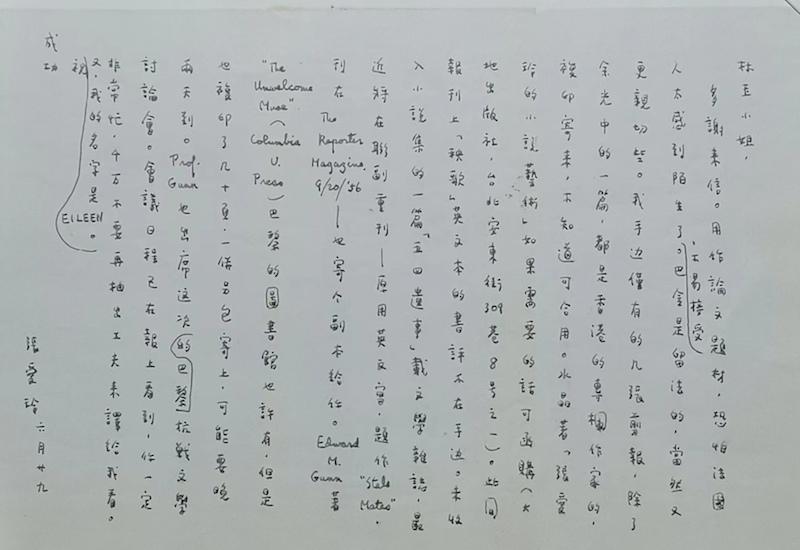 林 小姐，
多謝來信。用作論文題材，恐怕法國
人太感到陌生了，不易接受。巴金是留法的，當然又
更親切些。我手边僅有的几張剪報，除了
余光中的一篇都是香港的專欄作家的，
複印寄來，不知道可合用。水晶著「張愛
玲的小說藝術」如果需要的話可函購（大
地出版社，台北安東街309巷8号之一）。此間
報刊上「秧歌」英文本的書評不在手边。未收
入小說集的一篇「五四遺事」載文學雜誌，最
近將在聯副重刊——原用英文寫，題作"Stale Mates"，
刊在The Reporter Magazine 9/20/'56——也寄个副本給你。Edward M. Gunn著
"The Unwelcome Muse" (Columbia U. Press) 巴黎的圖書館也許有，但是
也複印了几十頁，一併另包寄上，可能要晚
兩天到。Prof. Gunn也出席這次的巴黎抗戰文學
討論會。會議日程已在報上看到，你一定
非常忙，千万不要再抽出工夫來譯給我看。
又，我的名字是EILEEN。
祝
成功
張愛玲 六月廿九